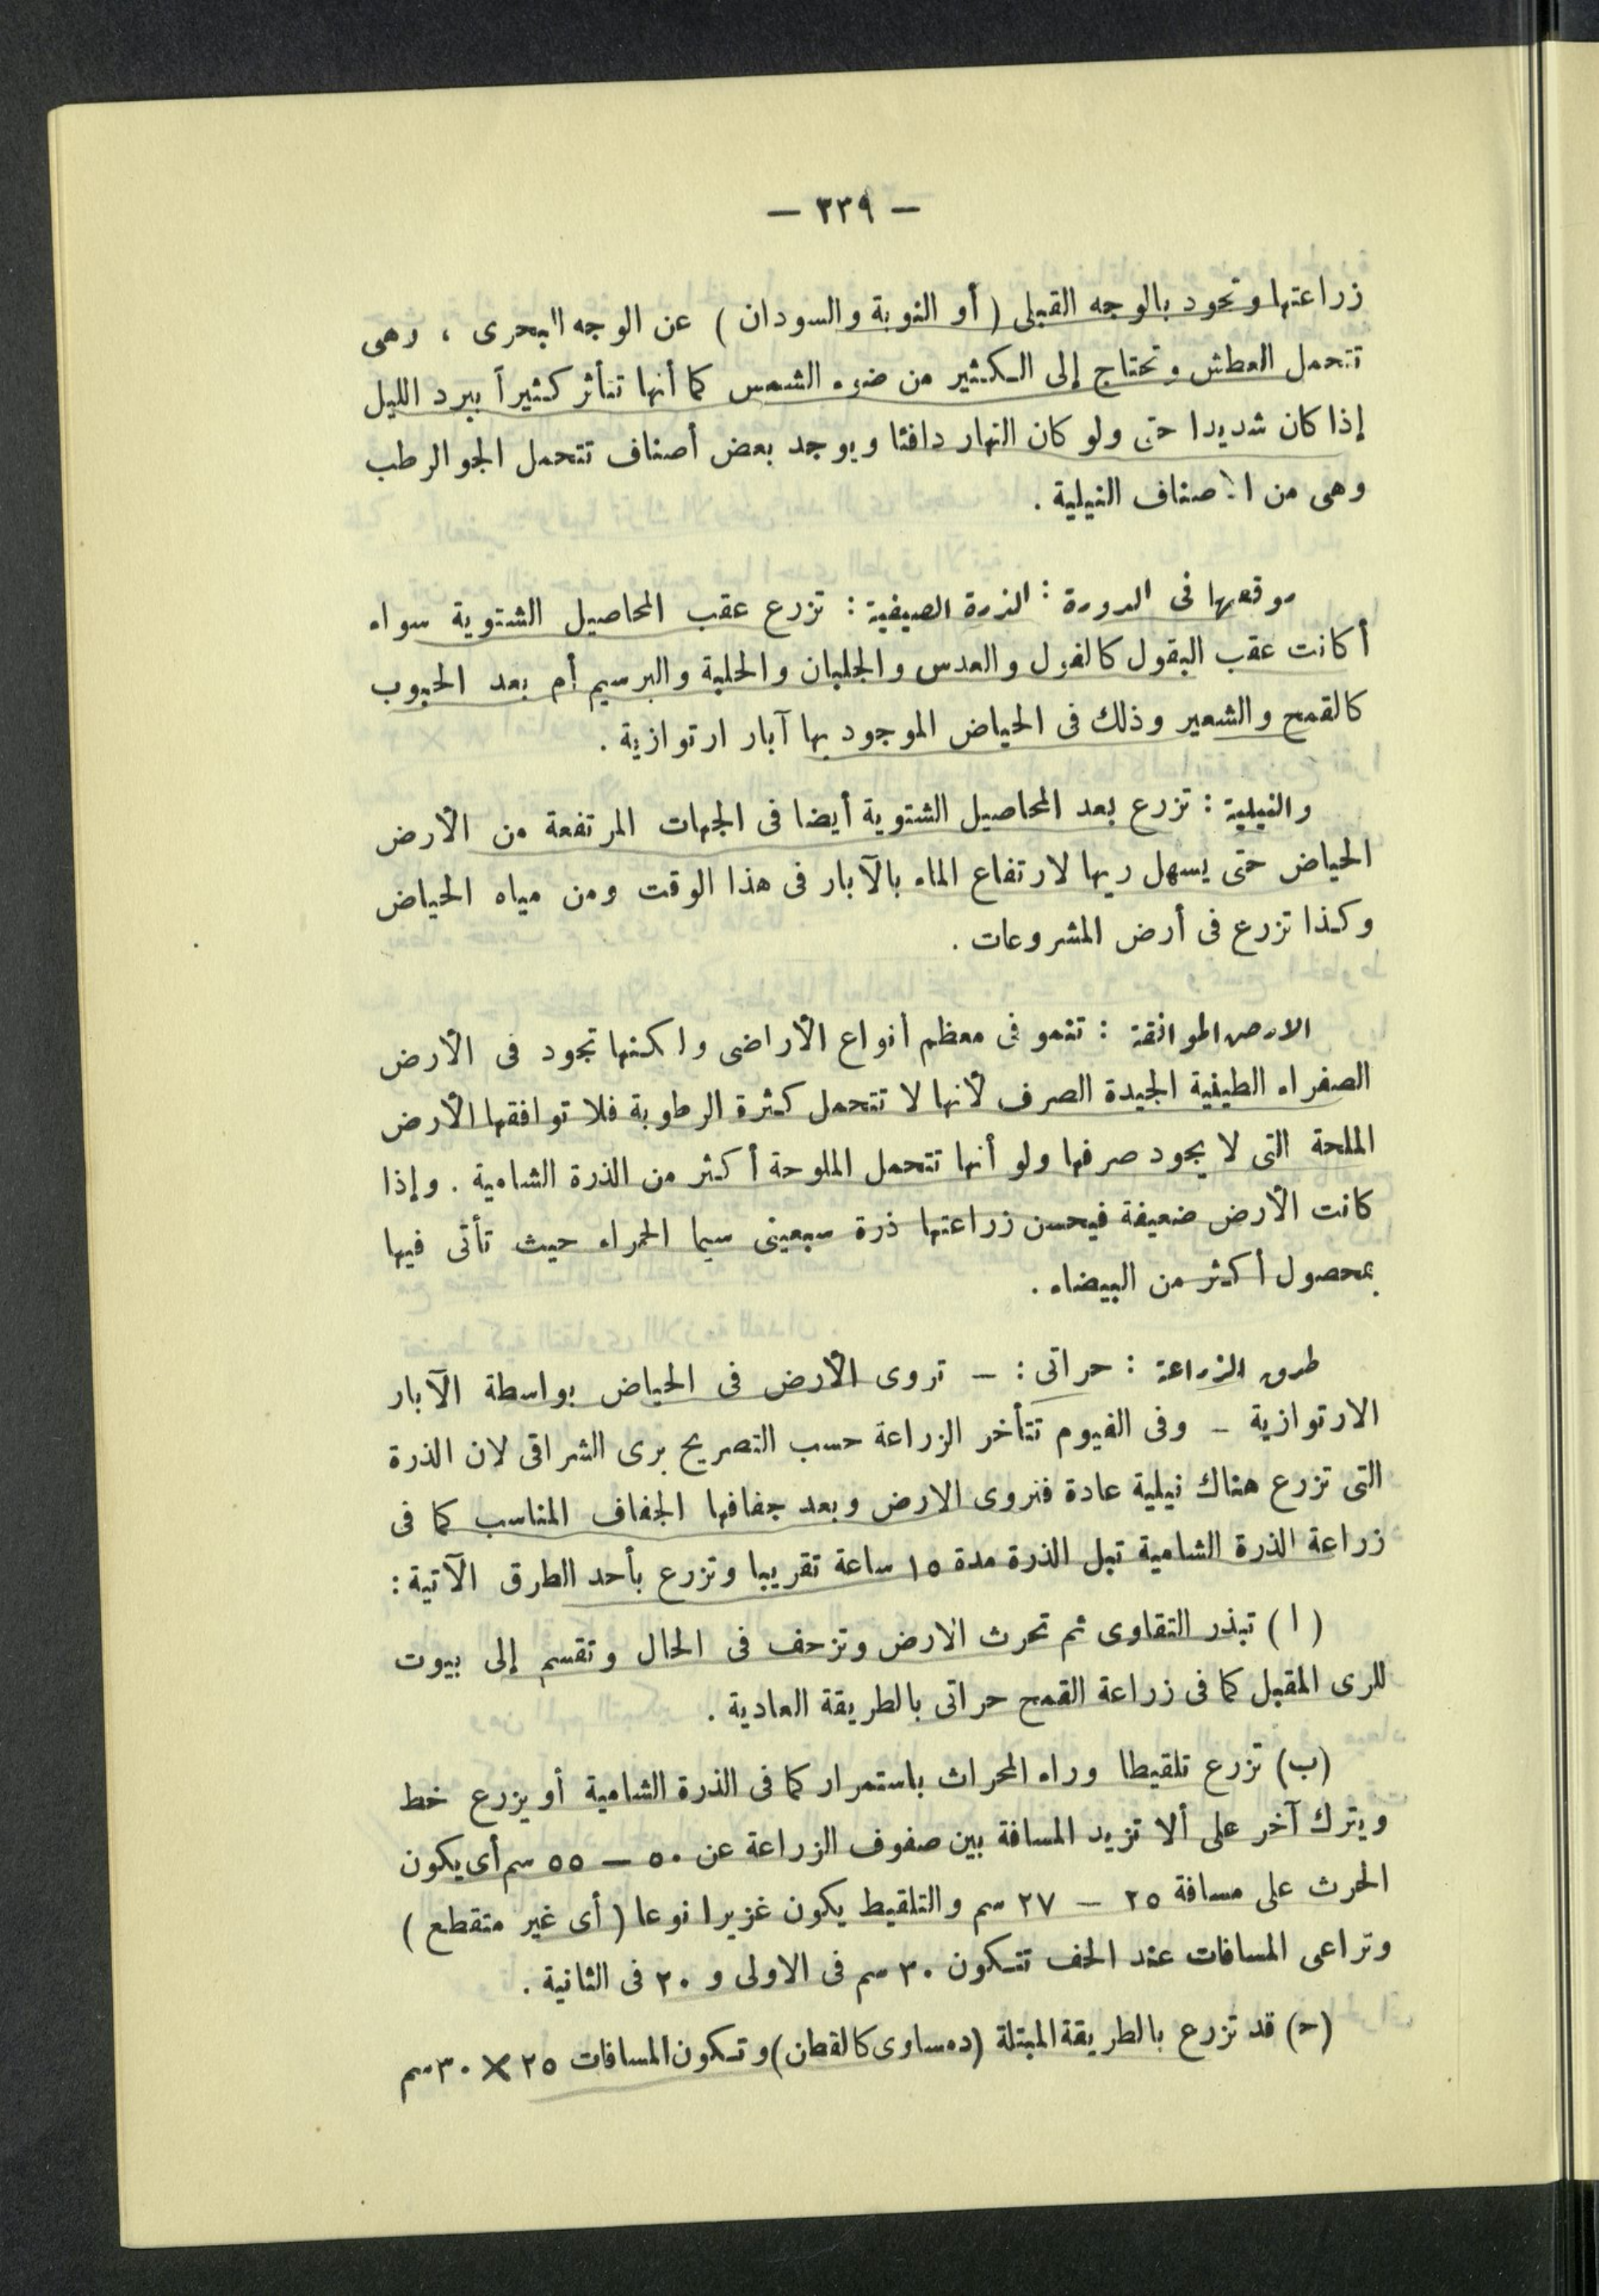 — ٣٣٩ —
زراعتها وتجود بالوجه القبلى ( أو النوبة والسودان ) عن الوجه البحرى ، وهى
تتحمل العطش وتحتاج إلى الكثير من ضوء الشمس كما أنها تتأثر كثيراً ببرد الليل
إذا كان شديدا حتى ولو كان النهار دافئا ويوجد بعض أصناف تتحمل الجو الرطب
وهى من الأصناف النيلية .
موقعها فى الدورة : الذرة الصيفية : تزرع عقب المحاصيل الشتوية سواء
أكانت عقب البقول كالفول والعدس والجلبان والحلبة والبرسيم أم بعد الحبوب
كالقمح والشعير وذلك فى الحياض الموجود بها آبار ارتوازية .
والنيلية : تزرع بعد المحاصيل الشتوية أيضا فى الجهات المرتفعة من الأرض
الحياض حتى يسهل ريها لارتفاع الماء بالآبار فى هذا الوقت ومن مياه الحياض
وكذا تزرع فى أرض المشروعات .
الارض الموافقة : تنمو فى معظم أنواع الأراضى ولكنها تجود فى الأرض
الصفراء الطينية الجيدة الصرف لأنها لا تتحمل كثرة الرطوبة فلا توافقها الأرض
الملحة التى لا يجود صرفها ولو أنها تتحمل الملوحة أكثر من الذرة الشامية . وإذا
كانت الأرض ضعيفة فيحسن زراعتها ذرة سبعينى سيما الحمراء حيث تأتى فيها
بمحصول أكثر من البيضاء .
طرق الزراعة : حراتى : — تروى الأرض فى الحياض بواسطة الآبار
الارتوازية — وفى الفيوم تتأخر الزراعة حسب التصريح برى الشراقى لان الذرة
التى تزرع هناك نيلية عادة فتروى الارض وبعد جفافها الجفاف المناسب كما فى
زراعة الذرة الشامية تبل الذرة مدة ١٥ ساعة تقريبا وتزرع بأحد الطرق الآتية :
( ا ) تبذر التقاوى ثم تحرث الارض وتزحف فى الحال وتقسم إلى بيوت
للرى المقبل كما فى زراعة القمح حراتى بالطريقة العادية .
(ب) تزرع تلقيطا وراء المحراث باستمرار كما فى الذرة الشامية أو يزرع خط
ويترك آخر على ألا تزيد المسافة بين صفوف الزراعة عن ٥٠ — ٥٥ سم أى يكون
الحرث على مسافة ٢٥ — ٢٧ سم والتلقيط يكون غزيرا نوعا ( أى غير متقطع )
وتراعى المسافات عند الخف تتكون ٣٠ سم فى الاولى و ٢٠ فى الثانية .
(ح) قد تزرع بالطريقة المبتلة (دمساوى كالقطن) وتكون المسافات ٢٥ × ٣٠ سم